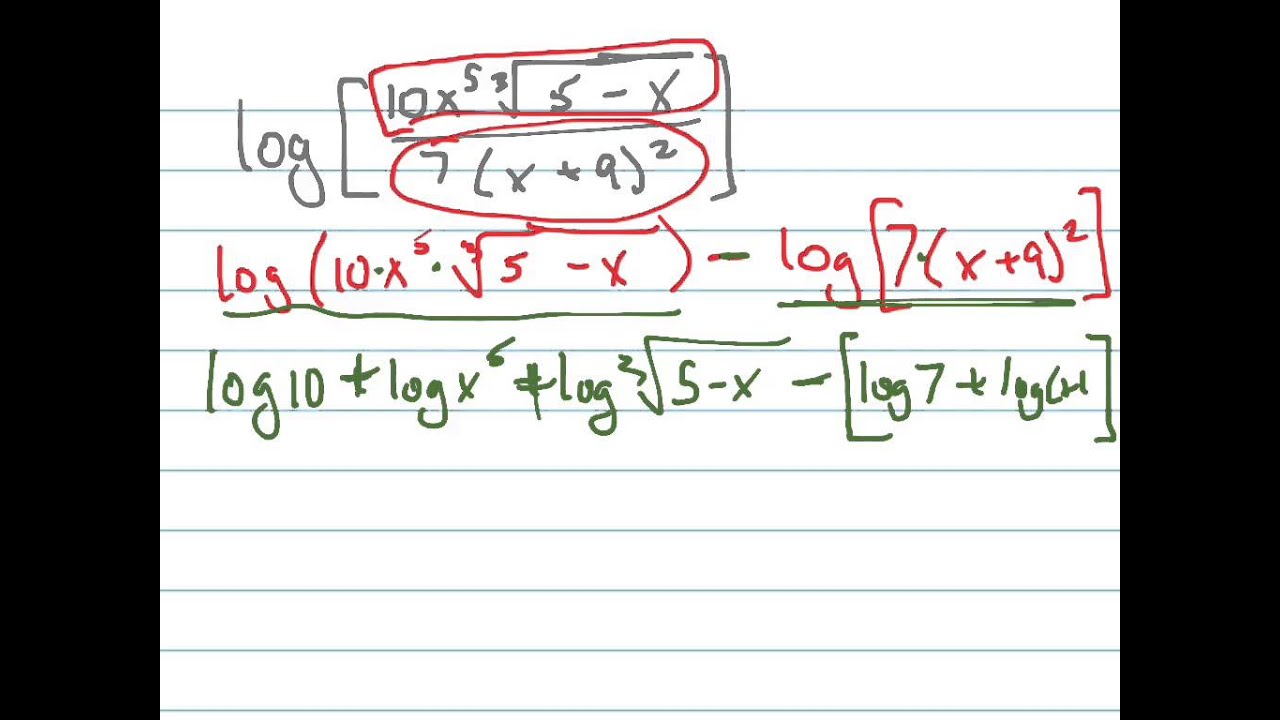 log [ 10x⁵ ∛(5 - x)
7(x + 9)² ]
log (10 · x⁵ · ∛(5 - x)) - log [7 · (x + 9)²]
log 10 + log x⁵ + log ∛(5 - x) - [log 7 + log(x+]